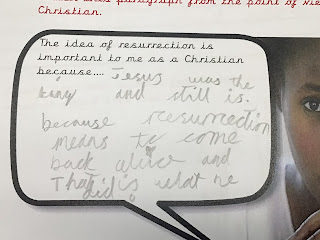 this paragraph from the point of vie
Christian.
The idea of resurrection is
important to me as a Christian
because.... Jesus was the
king and still is.
because resurrection
means to come
back alive and
That is what he
did.